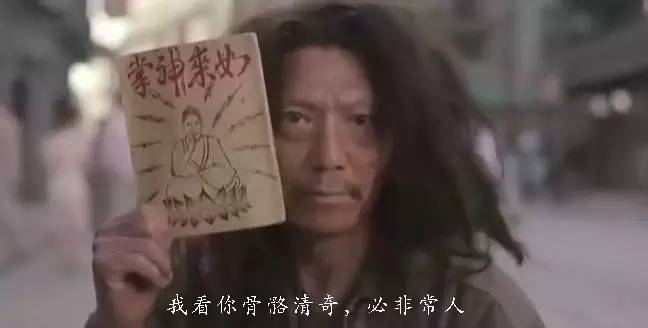 如来神掌
我看你骨骼清奇，必非常人